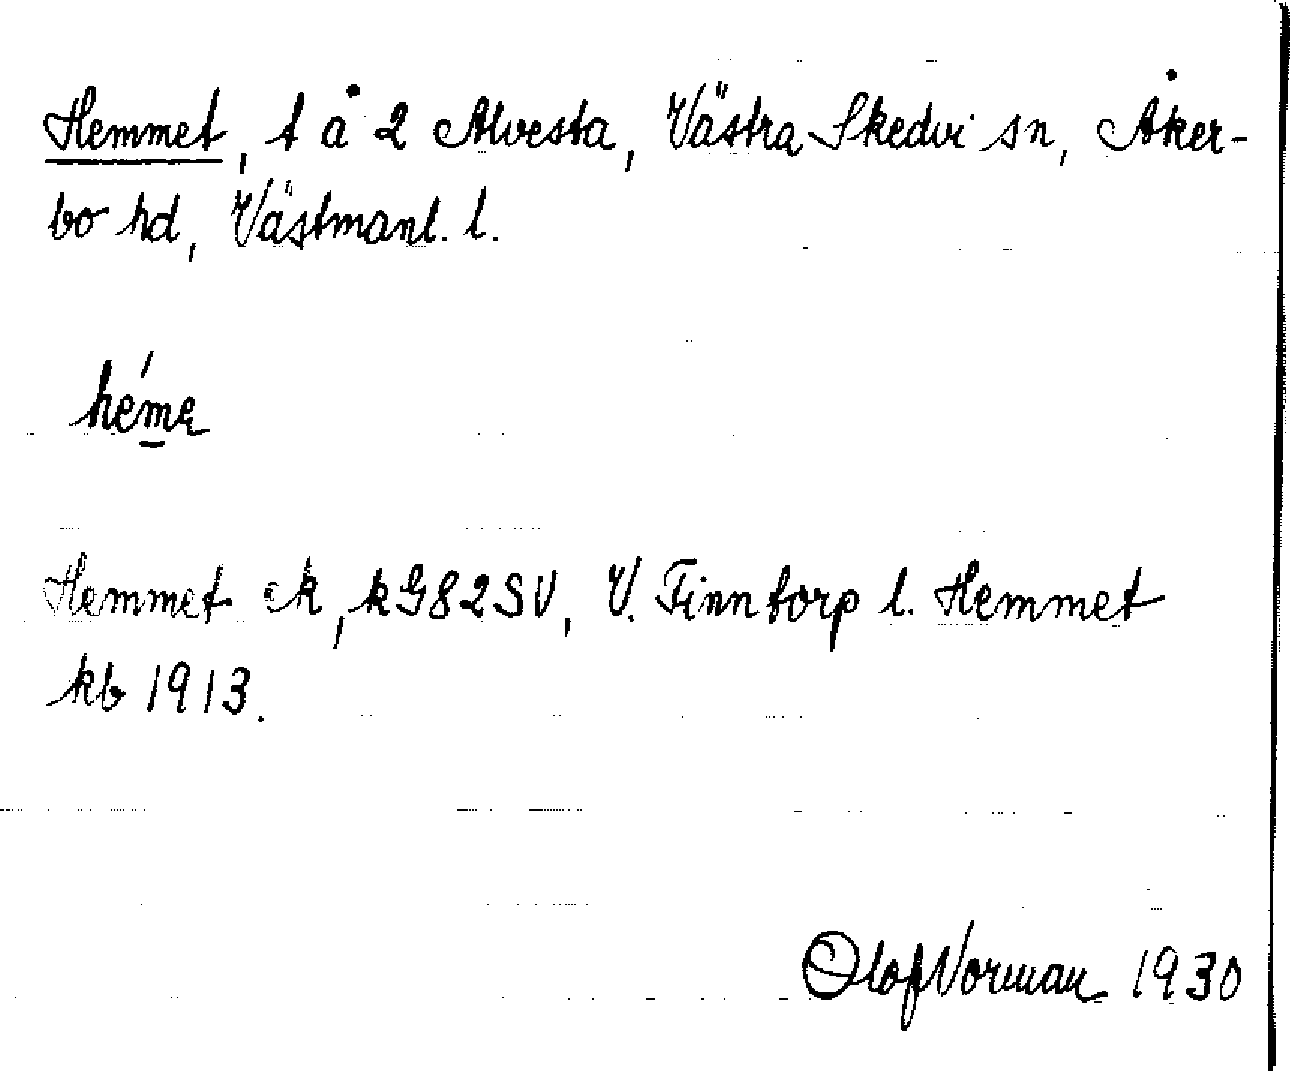 Hemmet, t å 2 Alvesta, Västra Skedvi sn, Åker-
bo hd, Västmanl. l.
héma
Hemmet ek, kG82SV, V. Finntorp l. Hemmet
kb 1913.
Olof Norman 1930